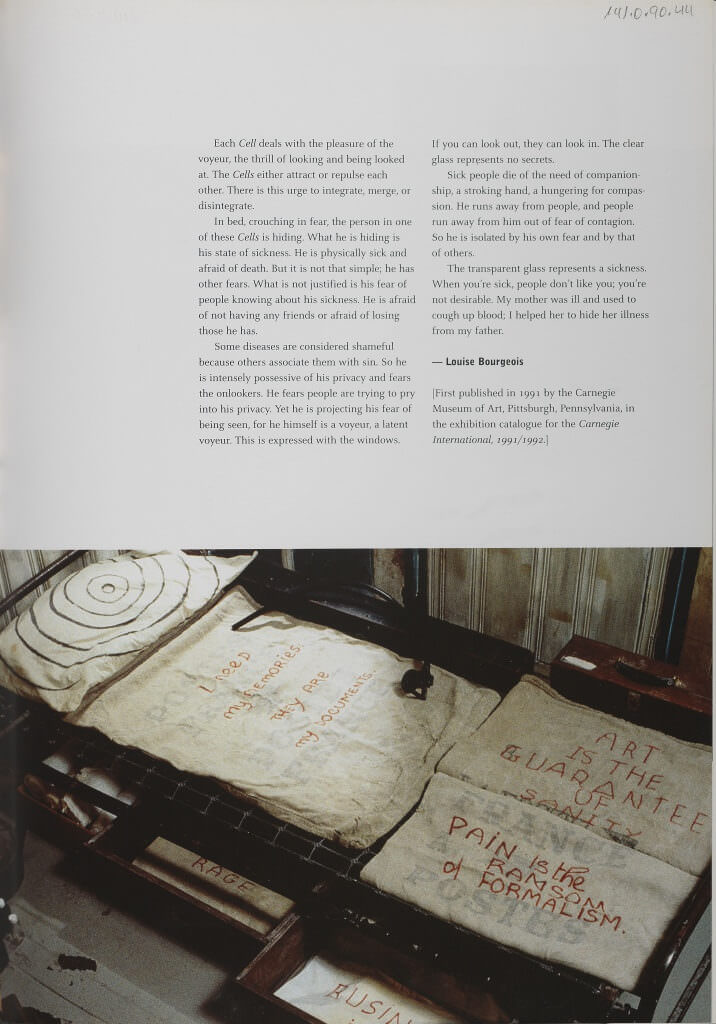 141.0.90.44
Each Cell deals with the pleasure of the
voyeur, the thrill of looking and being looked
at. The Cells either attract or repulse each
other. There is this urge to integrate, merge, or
disintegrate.
In bed, crouching in fear, the person in one
of these Cells is hiding. What he is hiding is
his state of sickness. He is physically sick and
afraid of death. But it is not that simple; he has
other fears. What is not justified is his fear of
people knowing about his sickness. He is afraid
of not having any friends or afraid of losing
those he has.
Some diseases are considered shameful
because others associate them with sin. So he
is intensely possessive of his privacy and fears
the onlookers. He fears people are trying to pry
into his privacy. Yet he is projecting his fear of
being seen, for he himself is a voyeur, a latent
voyeur. This is expressed with the windows.
If you can look out, they can look in. The clear
glass represents no secrets.
Sick people die of the need of companion-
ship, a stroking hand, a hungering for compas-
sion. He runs away from people, and people
run away from him out of fear of contagion.
So he is isolated by his own fear and by that
of others.
The transparent glass represents a sickness.
When you're sick, people don't like you; you're
not desirable. My mother was ill and used to
cough up blood; I helped her to hide her illness
from my father.
— Louise Bourgeois
[First published in 1991 by the Carnegie
Museum of Art, Pittsburgh, Pennsylvania, in
the exhibition catalogue for the Carnegie
International, 1991/1992.]
I need
my MEMORIES.
They ARE
my DOCUMENTS.
ART
IS THE
GUARANTEE
OF
SANITY
FRANCE
POSTES
PAIN is the
RANSOM
of FORMALISM.
RAGE
BUSIN